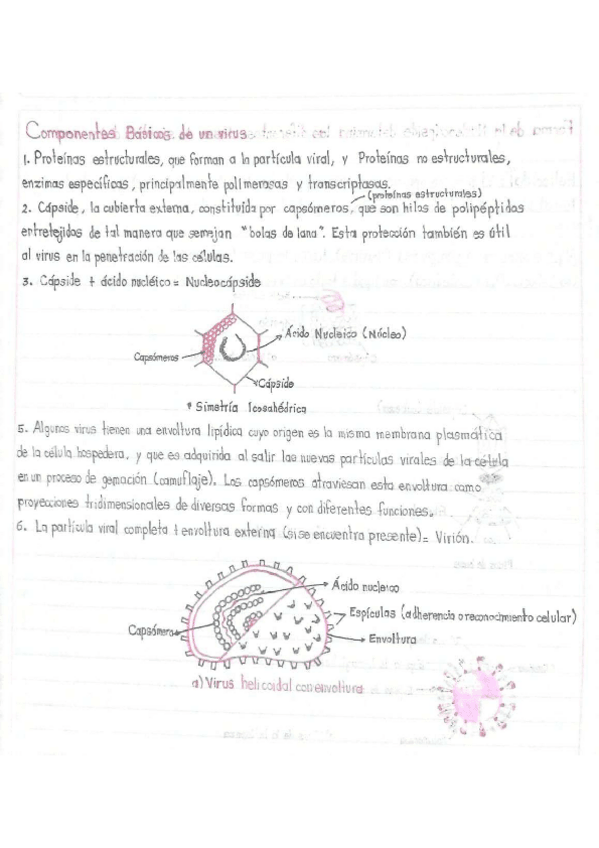 Componentes Básicos de un virus
1. Proteínas estructurales, que forman a la partícula viral, y Proteínas no estructurales,
enzimas específicas, principalmente polimerasas y transcriptasas.
(proteínas estructurales)
2. Cápside, la cubierta externa, constituida por capsómeros, que son hilos de polipéptidos
entretejidos de tal manera que semejan "bolas de lana". Esta protección también es útil
al virus en la penetración de las células.
3. Cápside + ácido nucléico = Nucleocápside
Ácido Nucleico (Núcleo)
Capsómeros
Cápside
Simetría Icosahédrica
5. Algunos virus tienen una envoltura lipídica cuyo origen es la misma membrana plasmática
de la célula hospedera, y que es adquirida al salir las nuevas partículas virales de la célula
en un proceso de gemación (camuflaje). Los capsómeros atraviesan esta envoltura como
proyecciones tridimensionales de diversas formas y con diferentes funciones.
6. La partícula viral completa + envoltura externa (si se encuentra presente) = Virión.
Ácido nucleico
Espículas (adherencia o reconocimiento celular)
Capsómero
Envoltura
a) Virus helicoidal con envoltura